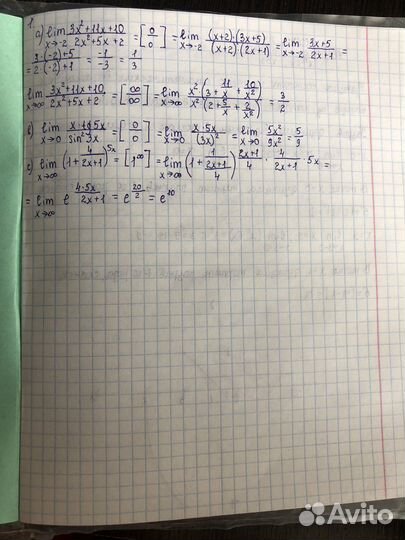 1.
а) lim x→-2 (3x²+11x+10)/(2x²+5x+2) = [0/0] = lim x→-2 ((x+2)·(3x+5))/((x+2)·(2x+1)) = lim x→-2 (3x+5)/(2x+1) =
= (3·(-2)+5)/(2·(-2)+1) = -1/-3 = 1/3
lim x→∞ (3x²+11x+10)/(2x²+5x+2) = [∞/∞] = lim x→∞ (x²(3+11/x+10/x²))/(x²(2+5/x+2/x²)) = 3/2
lim x→0 = [0/0] = lim x→0 (x·5x)/(3x)² = lim x→0 5x²/9x² = 5/9
lim x→∞ (1+4/(2x+1))^5x = [1^∞] = lim x→∞ (1+1/((2x+1)/4))^((2x+1)/4 · 4/(2x+1) · 5x) =
= lim x→∞ e^((4·5x)/(2x+1)) = e^(20/2) = e^10
Avito